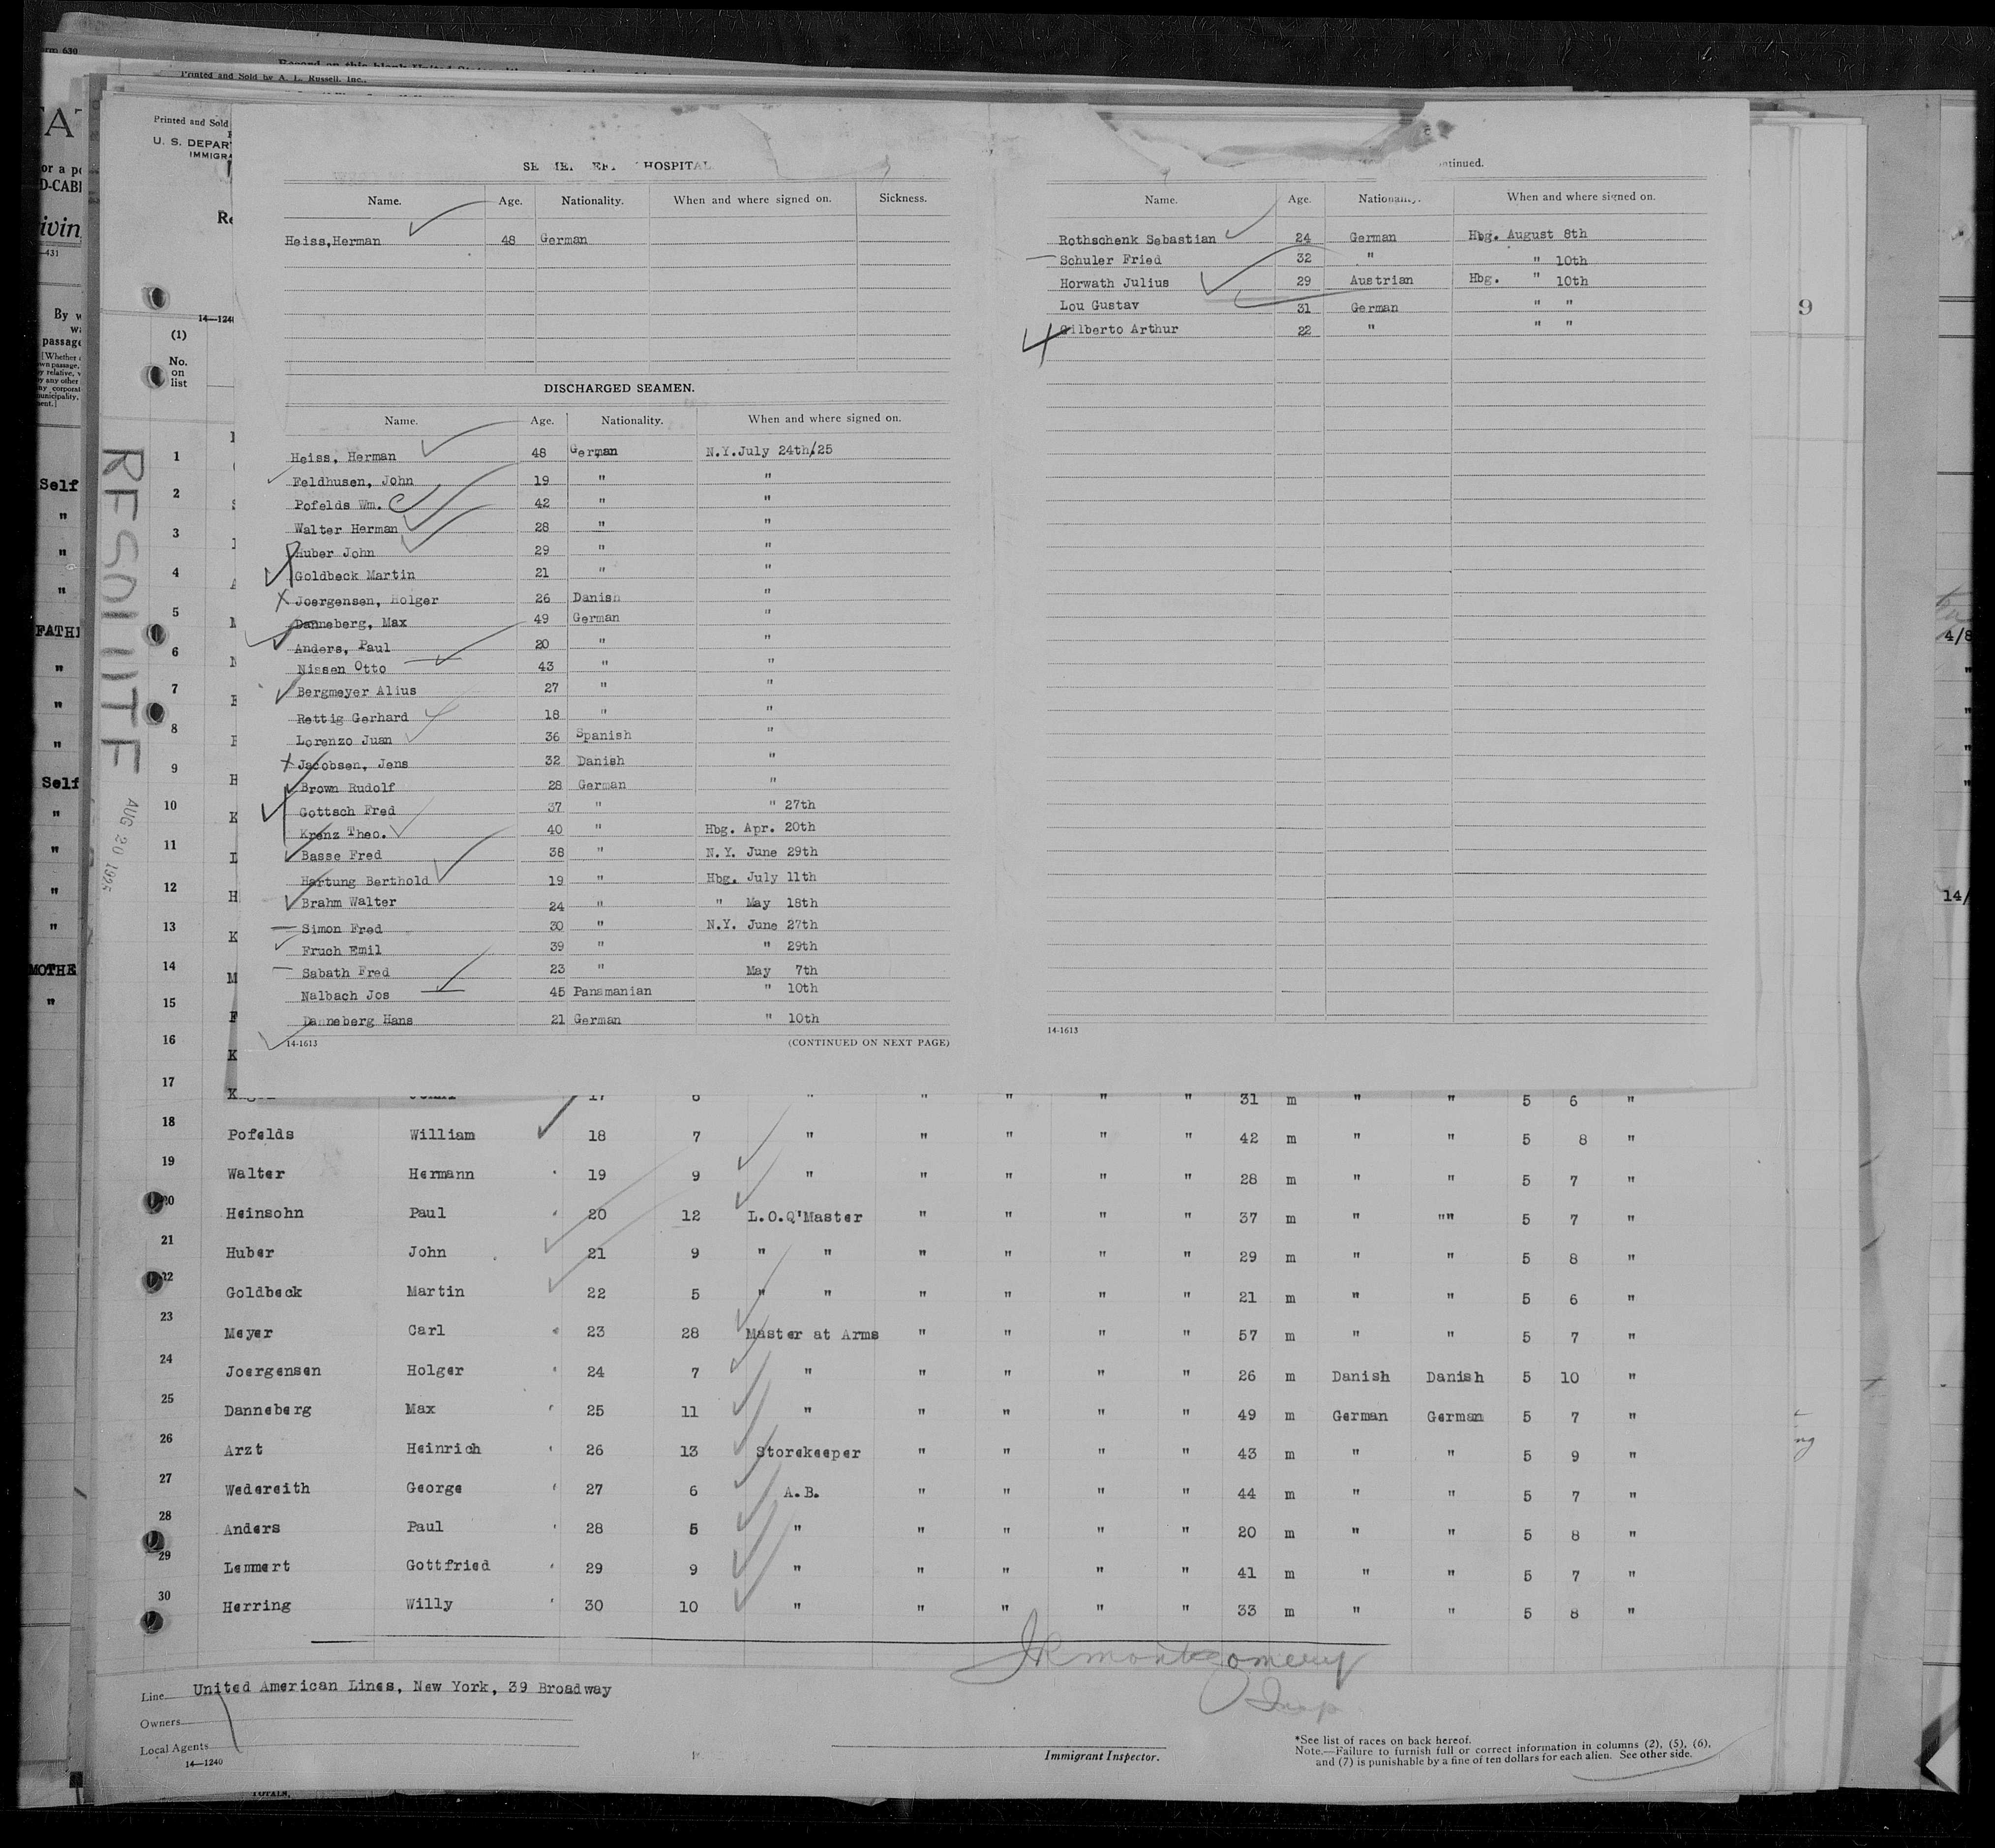 orm 630
Printed and Sold by A. L. Russell, Inc.,
Printed and Sold
U. S. DEPAR
IMMIGRA
or a po
D-CABI
ivin
—431
By w
wa
passage
[Whether
own passage,
by relative, w
by any other
ny corporat
municipality,
ment.]
14—1240
(1)
No.
on
list
HOSPITAL
Name. Age. Nationality. When and where signed on. Sickness.
Heiss,Herman 48 German
DISCHARGED SEAMEN.
Name. Age. Nationality. When and where signed on.
Heiss, Herman 48 German N.Y.July 24th/25
Feldhusen, John 19 " "
Pofelds Wm. 42 " "
Walter Herman 28 " "
Huber John 29 " "
Goldbeck Martin 21 " "
Joergensen, Holger 26 Danish "
Danneberg, Max 49 German "
Anders, Paul 20 " "
Nissen Otto 43 " "
Bergmeyer Alius 27 " "
Rettig Gerhard 18 " "
Lorenzo Juan 36 Spanish "
Jacobsen, Jens 32 Danish "
Brown Rudolf 28 German "
Gottsch Fred 37 " " 27th
Krenz Theo. 40 " Hbg. Apr. 20th
Basse Fred 38 " N.Y. June 29th
Hartung Berthold 19 " Hbg. July 11th
Brahm Walter 24 " " May 18th
Simon Fred 30 " N.Y. June 27th
Fruch Emil 39 " " 29th
Sabath Fred 23 " May 7th
Nalbach Jos 45 Panamanian " 10th
Danneberg Hans 21 German " 10th
14-1613 (CONTINUED ON NEXT PAGE)
ntinued.
Name. Age. Nationality. When and where signed on.
Rothschenk Sebastian 24 German Hbg. August 8th
Schuler Fried 32 " " 10th
Horwath Julius 29 Austrian Hbg. " 10th
Lou Gustav 31 German " "
Gilberto Arthur 22 " " "
14-1613
9
4/8
14/
Self
"
"
"
FATHE
"
"
"
Self
"
"
"
"
MOTHE
"
RESOLUTE
AUG 20 1925
1
2
3
4
5
6
7
8
9
10
11
12
13
14
15
16
17 17 6 " " " " " 31 m " " 5 6 "
18 Pofelds William 18 7 " " " " " 42 m " " 5 8 "
19 Walter Hermann 19 9 " " " " " 28 m " " 5 7 "
20 Heinsohn Paul 20 12 L.O.Q'Master " " " " 37 m " "" 5 7 "
21 Huber John 21 9 " " " " " " 29 m " " 5 8 "
22 Goldbeck Martin 22 5 " " " " " " 21 m " " 5 6 "
23 Meyer Carl 23 28 Master at Arms " " " " 57 m " " 5 7 "
24 Joergensen Holger 24 7 " " " " " 26 m Danish Danish 5 10 "
25 Danneberg Max 25 11 " " " " " 49 m German German 5 7 "
26 Arzt Heinrich 26 13 Storekeeper " " " " 43 m " " 5 9 "
27 Wedereith George 27 6 A.B. " " " " 44 m " " 5 7 "
28 Anders Paul 28 5 " " " " " 20 m " " 5 8 "
29 Lemmert Gottfried 29 9 " " " " " 41 m " " 5 7 "
30 Herring Willy 30 10 " " " " " 33 m " " 5 8 "
JR Montgomery
Insp
Line United American Lines, New York, 39 Broadway
Owners
Local Agents
14—1240
Immigrant Inspector.
*See list of races on back hereof.
Note.—Failure to furnish full or correct information in columns (2), (5), (6),
and (7) is punishable by a fine of ten dollars for each alien. See other side.
TOTALS,